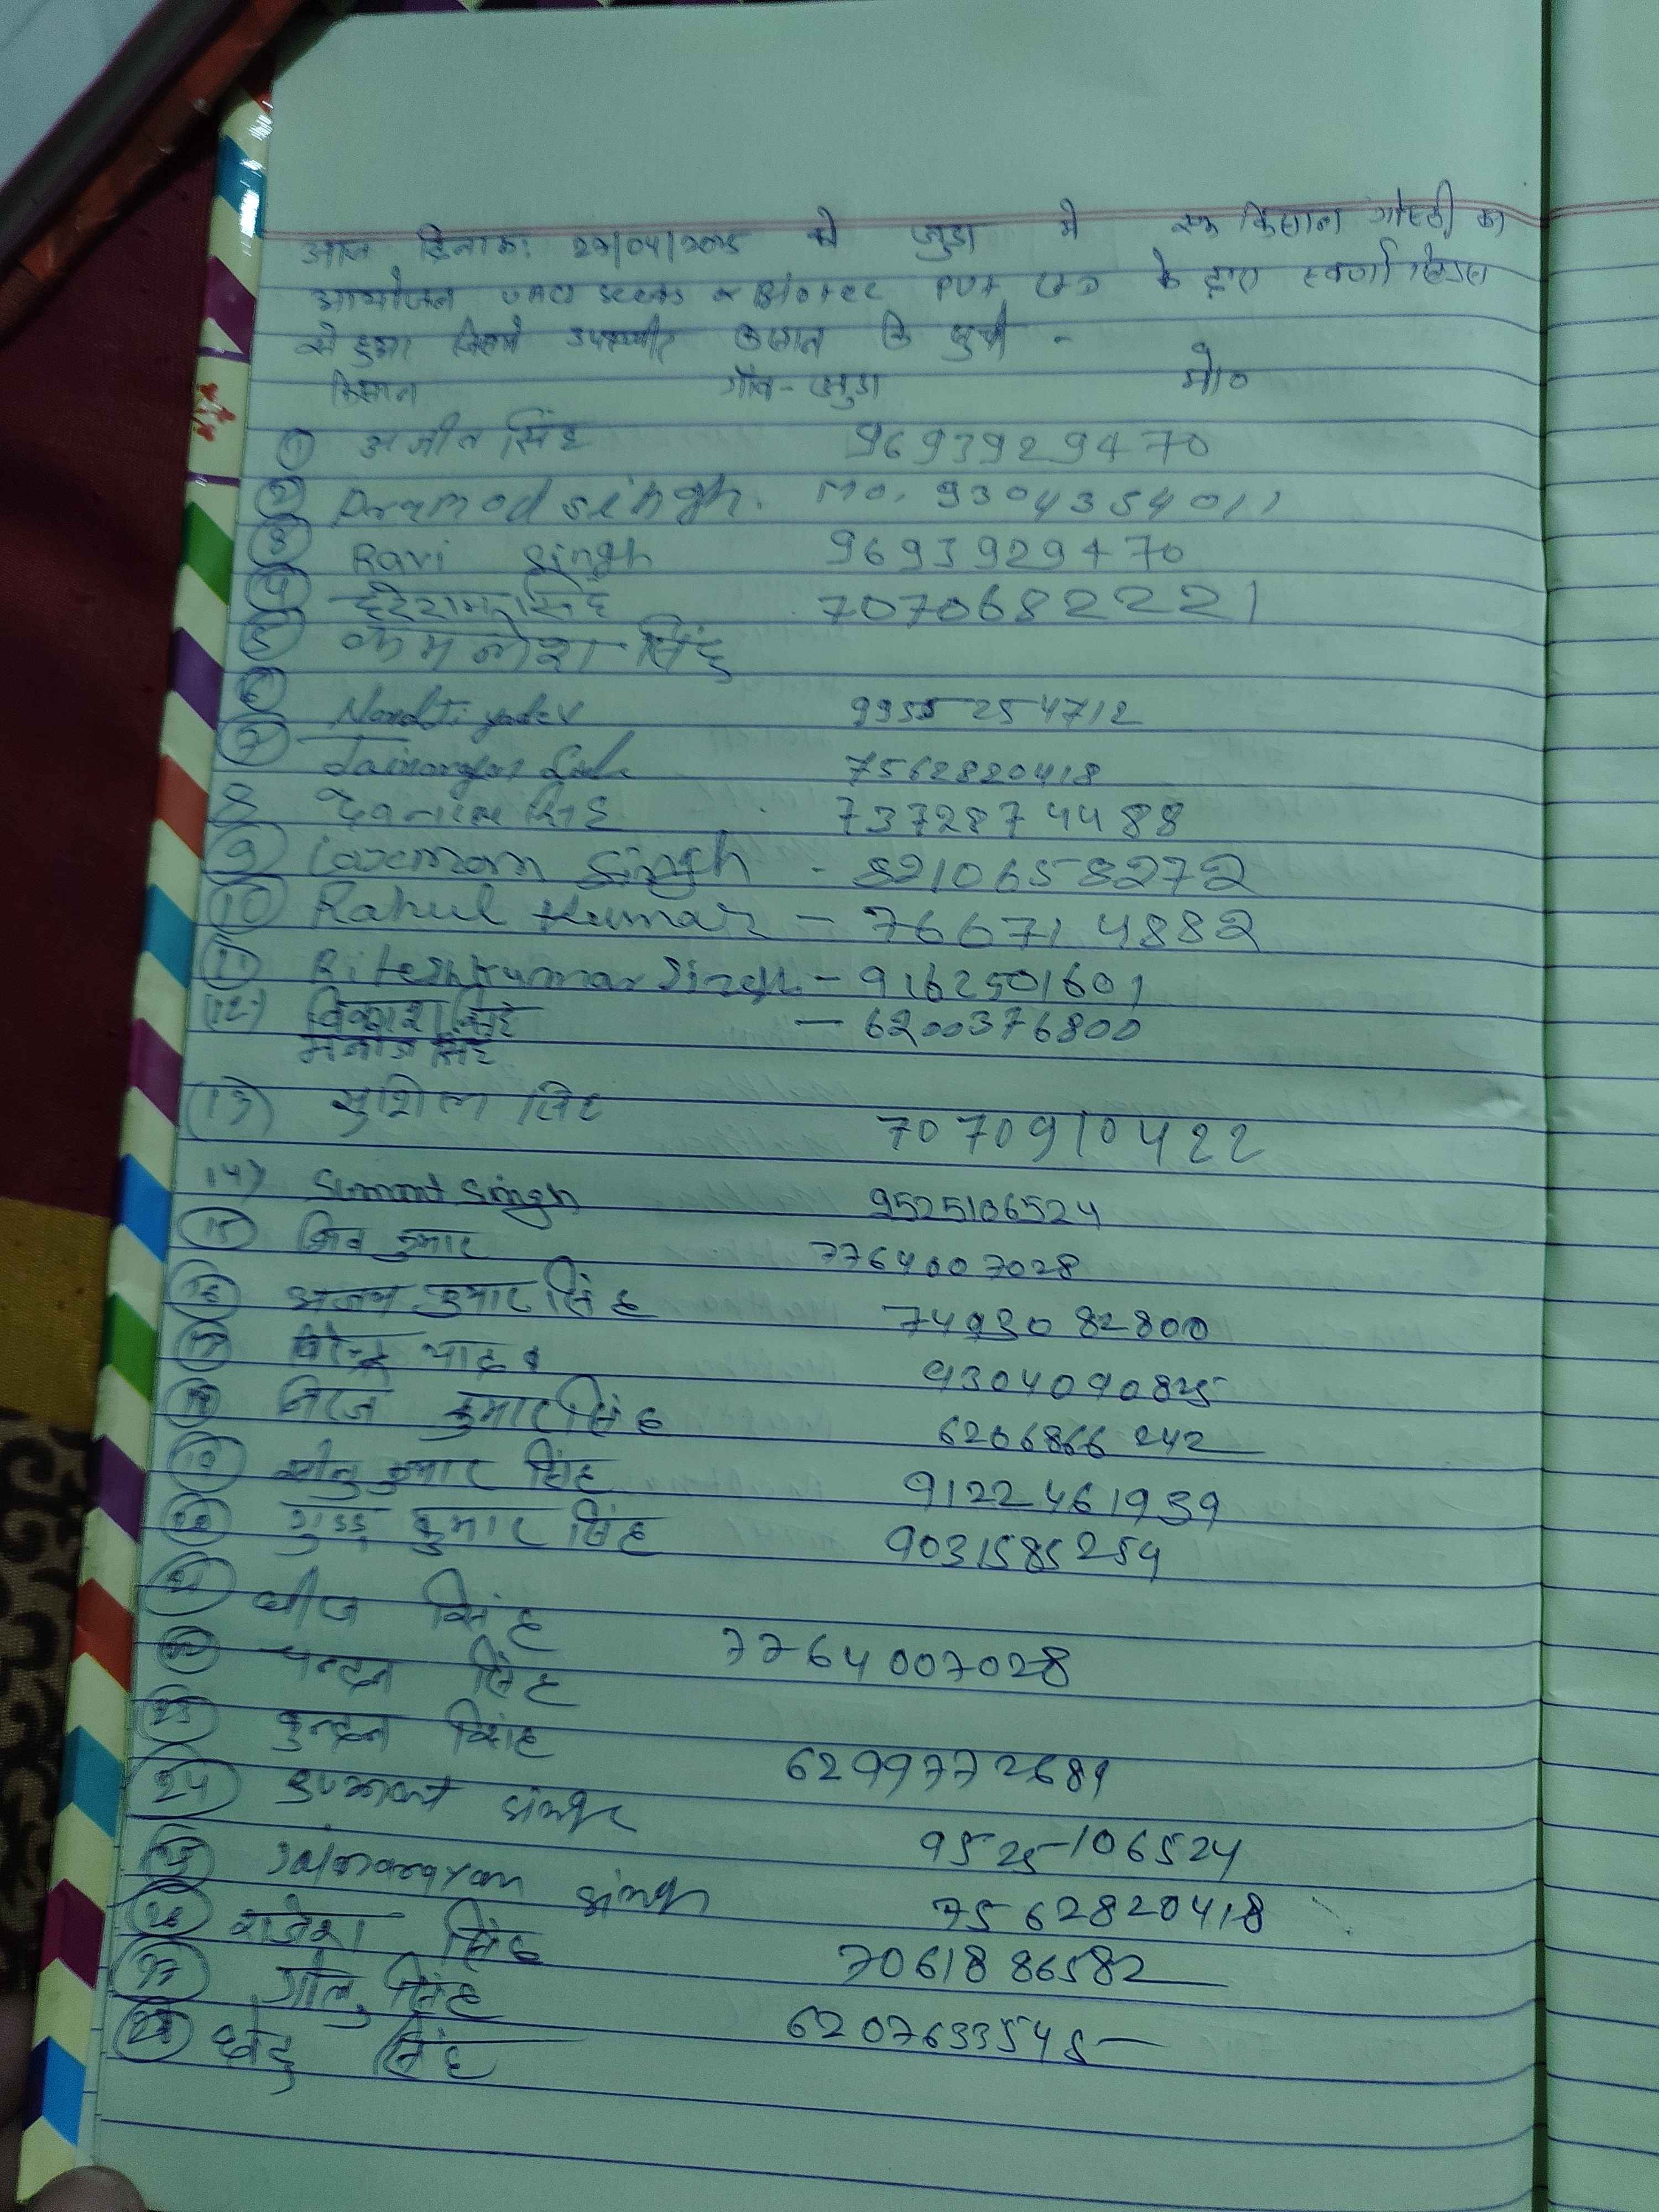 आज दिनांक: 29/04/2025 को जुडा मे एक किसान गोष्ठी का
आयोजन seeds & Biotec PVT LTD के द्वारा स्वर्णा
से हुआ जिसमे उपस्थीत किसान कि सुची -
किसान गाँव - जुडा मो०
① अजीत सिंह 9693929470
② Pramod singh. Mo. 9304354011
③ Ravi singh 9693929470
④ हरेराम सिंह 7070682221
⑤ कमलेश सिंह
⑥ yadev 9955254712
⑦ Jainarayan 7562820418
8 सिंह 7372874488
⑨ Laxman Singh - 8210658272
⑩ Rahul Kumar - 7667144882
⑪ Ritesh Kumar Singh - 9162501601
(12) विकाश सिंह - 6200376800
मनोज सिंह
(13) सुशिल सिंह 7070910422
14) Sumant Singh 9525106524
⑮ शिव कुमार 7764007028
⑯ अजय कुमार सिंह 7493082800
⑰ विरेन्द्र यादव 9304090825
⑱ निरज कुमार सिंह 6206866242
⑲ सोनु कुमार सिंह 9122461939
⑳ गुड्डु कुमार सिंह 9031585254
㉑ धीरज सिंह 7764007028
㉒ चन्दन सिंह
㉓ कुन्दन सिंह 6299772689
㉔ singh 9525106524
㉕ Jainarayan singh 7562820418
㉖ राजेश सिंह 7061886582
㉗ गोलु सिंह 6207633545
㉘ छोटु सिंह